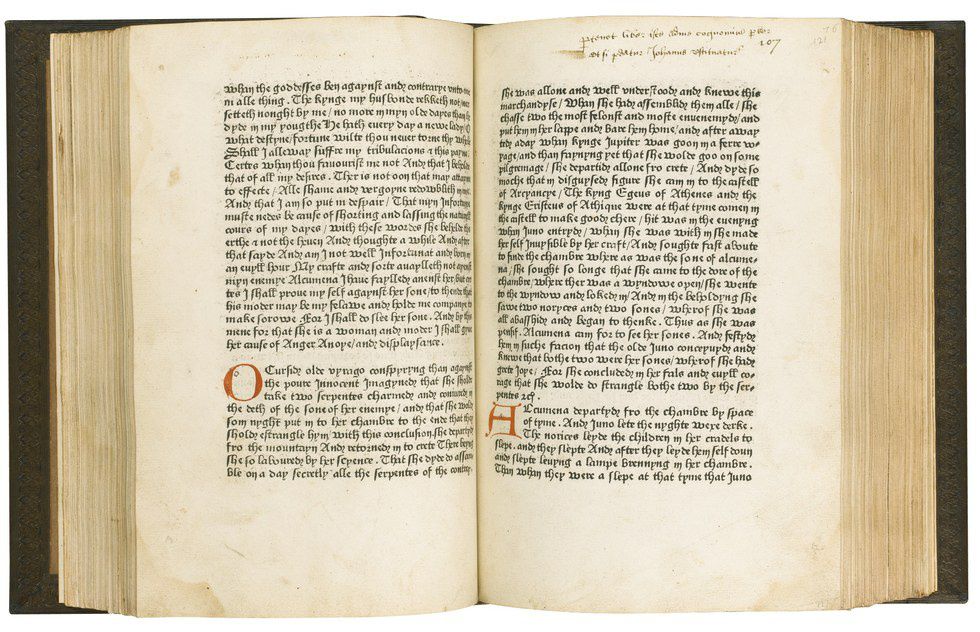 whan the goddesses ben agaynst and contrarye vnto me
in alle thing . The kynge my husbonde rekketh not
setteth nought by me / no more in myn olde dayes than he
dyde in my yougthe He hath euery day a newe lady / O
what destyne / fortune wilte thou neuer torne thy
Shall I alleway suffre my tribulacions & this payne
Certes whan thou fauourist me not And that I beholde
that of all my desires . Ther is not oon that may attayne
to effecte / Alle shame and vergoyne redowblith in me.
And that I am so put in despair / That myn Infortune
muste nedes be cause of shorting and lassing the naturell
cours of my dayes / with these wordes she behelde the
erthe & not the heuen And thought a while And after
that sayde And am I not well Infortunat and born in
an euyll hour My crafte and sorte auaylleth not ayenst
myn enemye Alcumena I haue faylled anenst her / but
tes I shall prove my self agaynst her sone / to thende that
his moder may be my felawe and holde me companye to
make sorowe For I shall do slee her sone . And by this
mene for that she is a woman and moder I shall gyue
her cause of Anger Anoye / and displaysance .
O Cursid olde vyrago conspyryng than agaynst
the poure Innocent Imagyned that she sholde
take two serpentes charmed and coniured in
the deth of the sone of her enemye / and that she wold
som nyght put in to her chambre to the ende that they
shold estrangle hym with this conclusion . she departed
fro the mountayn And retorned in to crete There beyng
she so laboured by her scyence . That she dyde do assam
ble on a day secretly alle the serpentes of the contrey .
107
121
she was allone and well vnderstood and knewe this
marchandyse / whan she had assemblid them alle / she
chase two the most felonst and moste enuenemyd / and
put hem in her lappe and bare hem home / and after a way
ted a day whan kynge Iupiter was goon in a ferre vo-
yage / and than faynyng yet that she wolde goo on some
pilgremage / she departid allone fro crete / And dyde so
moche that in disguysed figure she cam in to the castell
of Arcyancye / The kyng Egeus of Athenes and the
kynge Eristeus of Athique were at that tyme comen in
the castell to make good chere / hit was in the euenyng
whan Iuno entryd / whan she was with in she made
her self Inuysible by her craft / And soughte fast aboute
to finde the chambre where as was the sone of alcume-
na / she sought so longe that she came to the dore of the
chambre / where ther was a wyndowe open / she wente
to the wyndow and loked in / And in the beholdyng she
sawe two noryces and two sones / wherof she was
all abasshid and began to thenke . Thus as she was
pensif . Alcumena cam for to see her sones . And festyd
hem in suche facion that the olde Iuno conceyuyd and
knewe that bothe two were her sones / wherof she had
grete Ioye / For she concluded in her fals and euyll co-
rage that she wolde do strangle bothe two by the ser-
pentes &c .
A Lcumena departyd fro the chambre by space
of tyme . And Iuno lete the nyght wexe derke .
The norices leyde the children in her cradels to
slepe . and they slepte And after they leyde hem self doun
and slepte leuyng a lampe brennyng in her chambre .
Than whan they were a slepe at that tyme that Iuno